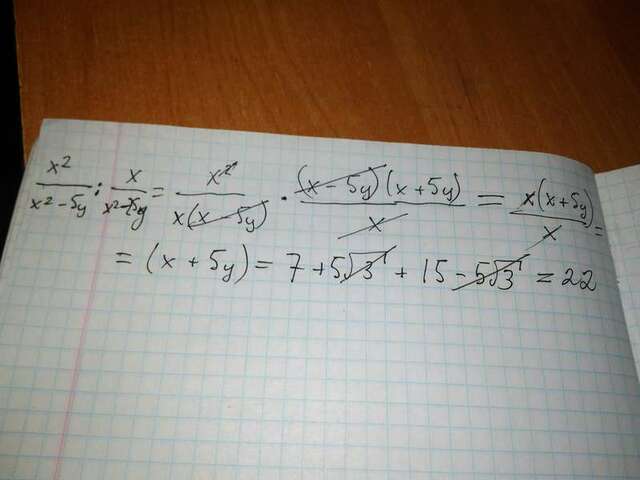 x²/(x² - 5y) : x/(x² - 5y) = x²/(x(x - 5y)) · ((x - 5y)(x + 5y))/x = x(x + 5y)/x =
= (x + 5y) = 7 + 5√3 + 15 - 5√3 = 22